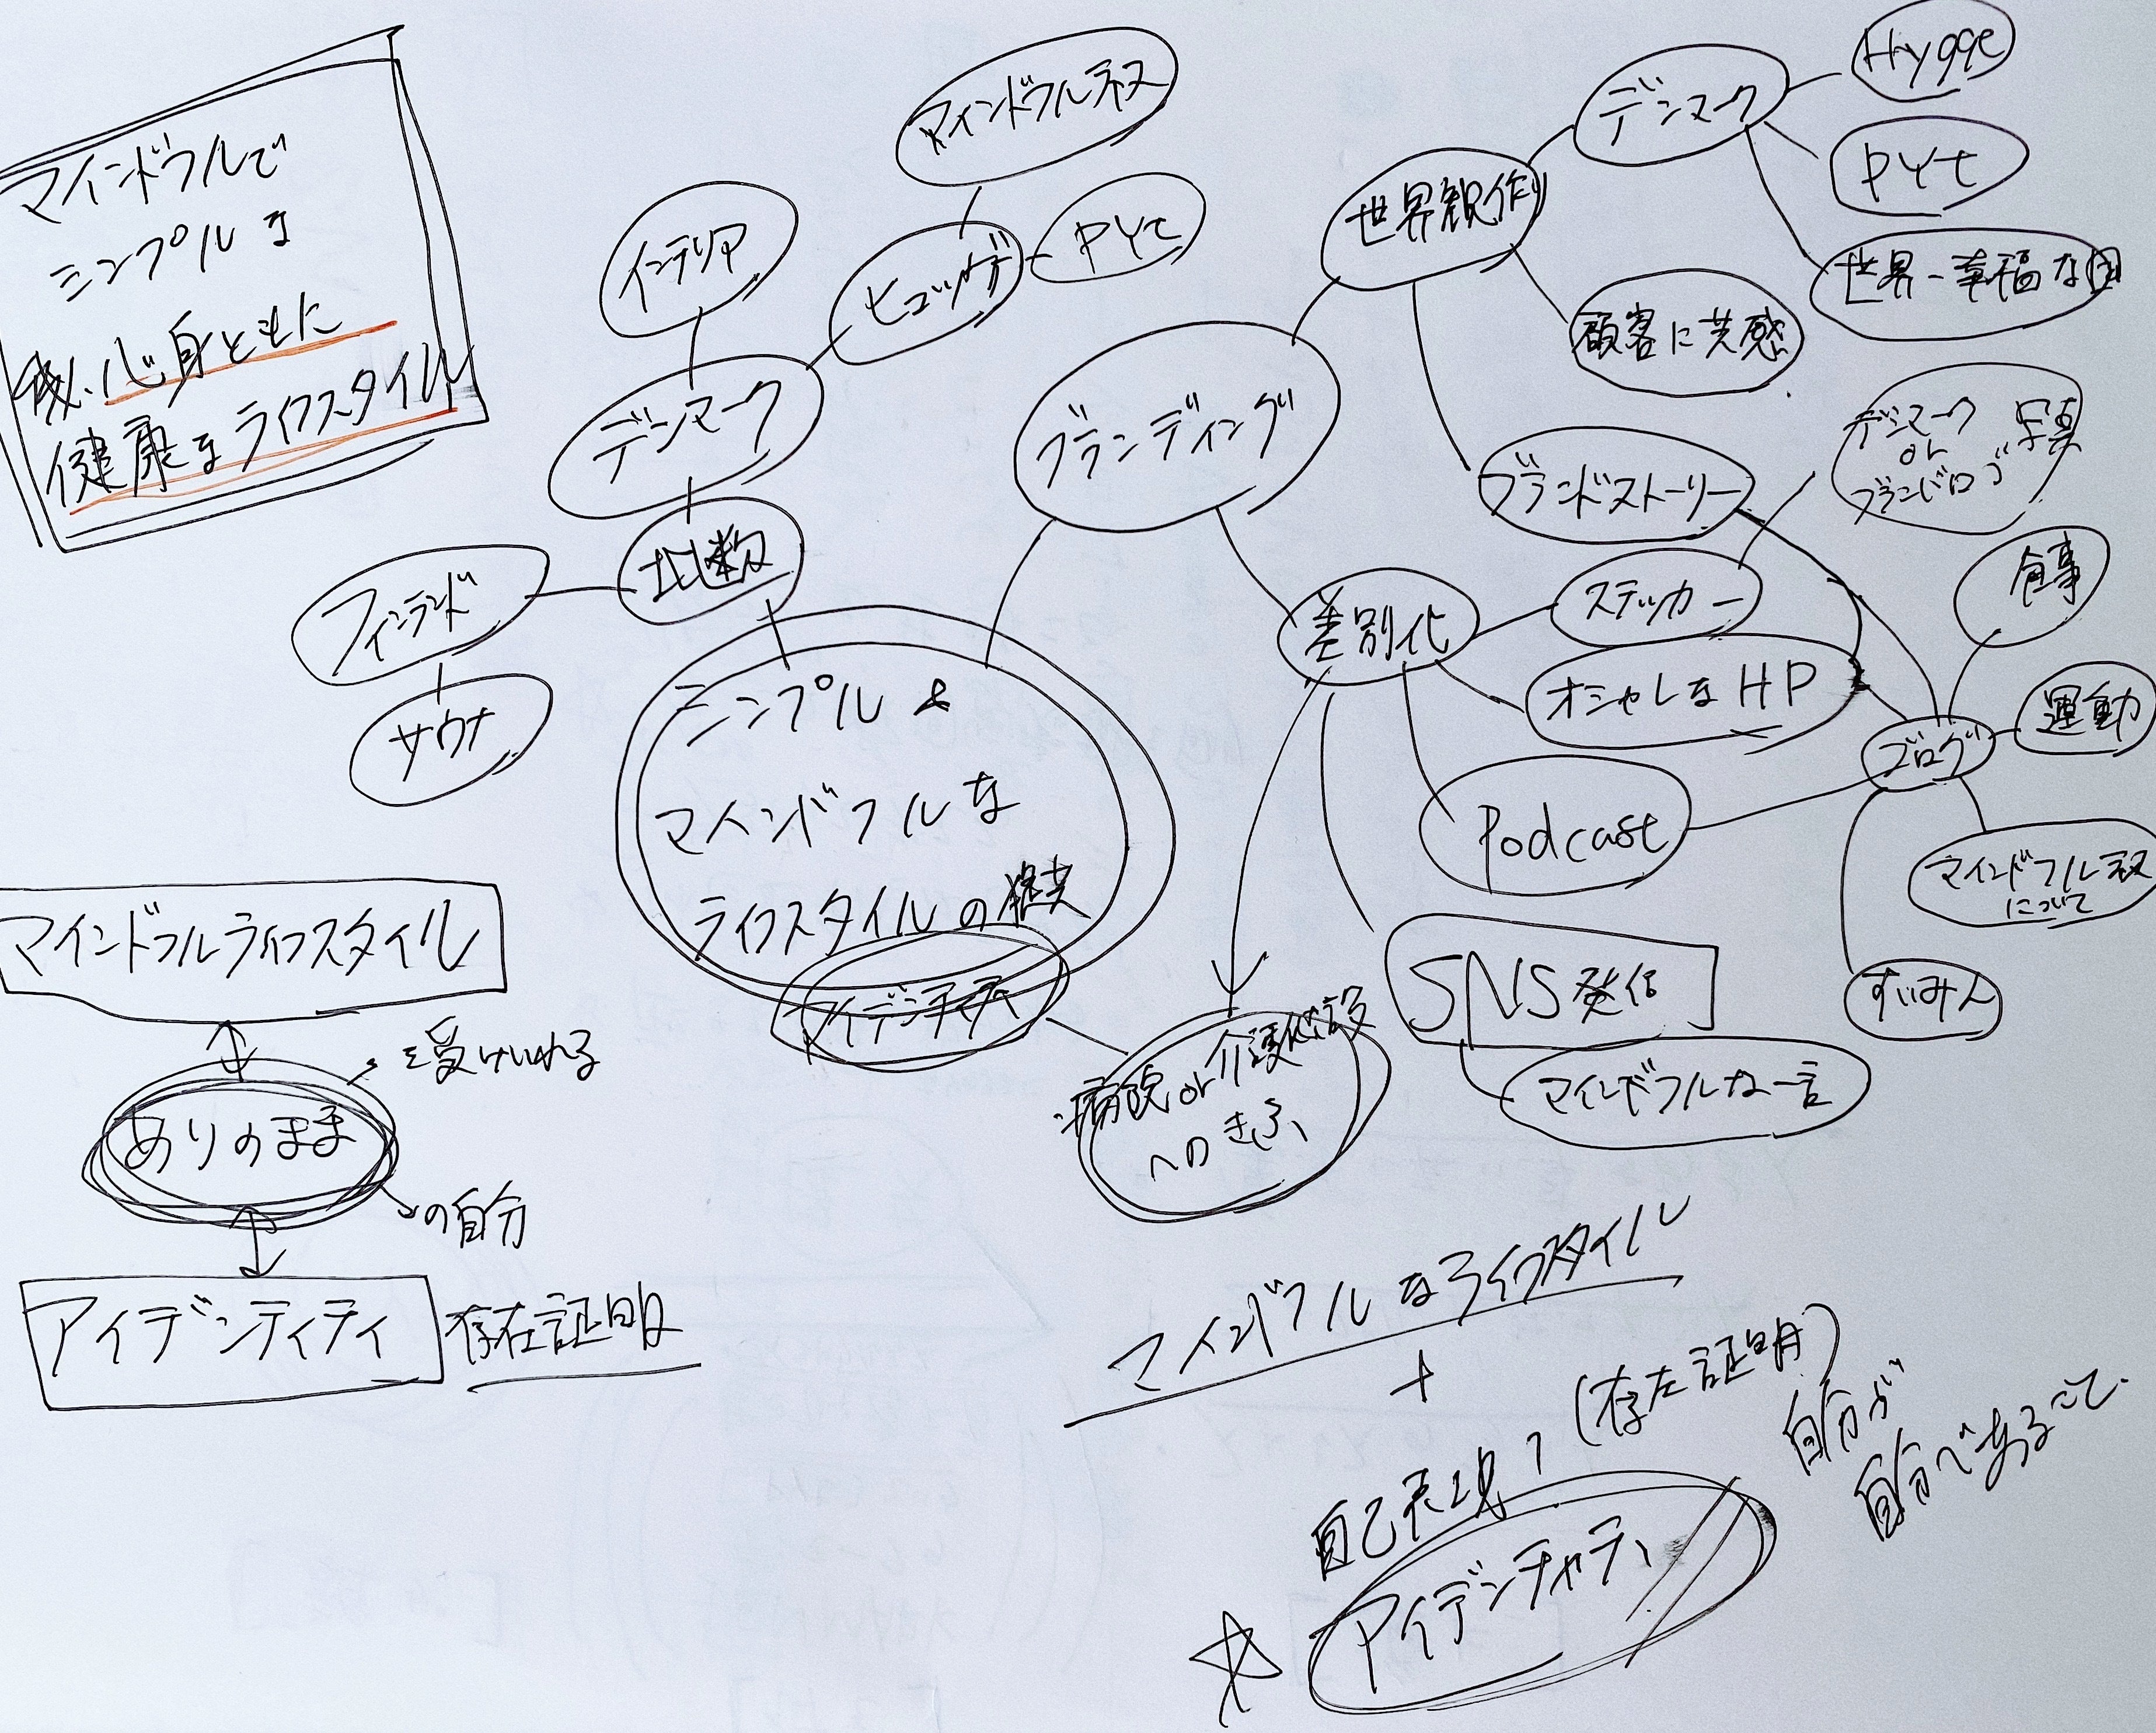 マインドフルで
シンプルな
心身ともに
健康なライフスタイル
マインドフルネス
インテリア
ヒュッゲ
PYt
デンマーク
北欧
フィンランド
サウナ
シンプル &
マインドフルな
ライフスタイルの
アイデンティティ
ブランディング
世界観作り
デンマーク
Hygge
PYt
世界一幸福な国
顧客に共感
ブランドストーリー
デンマーク
or
ブランドロゴ
写真
差別化
ステッカー
オシャレなHP
Podcast
ブログ
食事
運動
マインドフルネス
について
すいみん
SNS発信
マインドフルな一言
病院or介護施設
へのきふ
マインドフルライフスタイル
を受けいれる
ありのまま
の自分
アイデンティティ
存在証明
マインドフルなライフスタイル
+
自己表現?
(存在証明)
自分が
自分であること。
アイデンチャティ